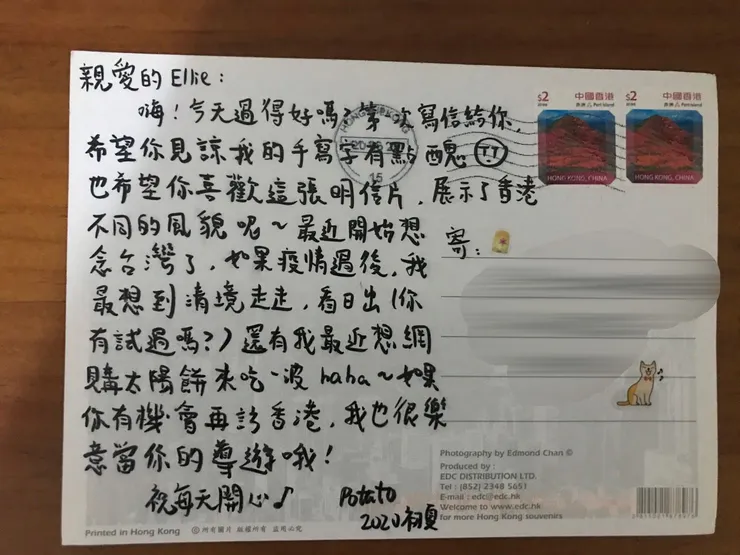 親愛的Ellie:
嗨!今天過得好嗎?第一次寫信給你,
希望你見諒我的手寫字有點醜 T.T
也希望你喜歡這張明信片,展示了香港
不同的風貌呢~最近開始想
念台灣了,如果疫情過後,我
最想到清境走走,看日出(你
有試過嗎?)還有我最近想網
購太陽餅來吃一波haha~如果
你有機會再訪香港,我也很樂
意當你的導遊哦!
祝每天開心♪
Potato
2020初夏
$2
中國香港
Port Island
HONG KONG, CHINA
$2
中國香港
Port Island
HONG KONG, CHINA
HONG KONG
15
寄:
Photography by Edmond Chan ©
Produced by :
EDC DISTRIBUTION LTD.
Tel : (852) 2348 5651
E-mail : edc@edc.hk
Welcome to www.edc.hk
for more Hong Kong souvenirs
Printed in Hong Kong © 所有圖片 版權所有 盜用必究